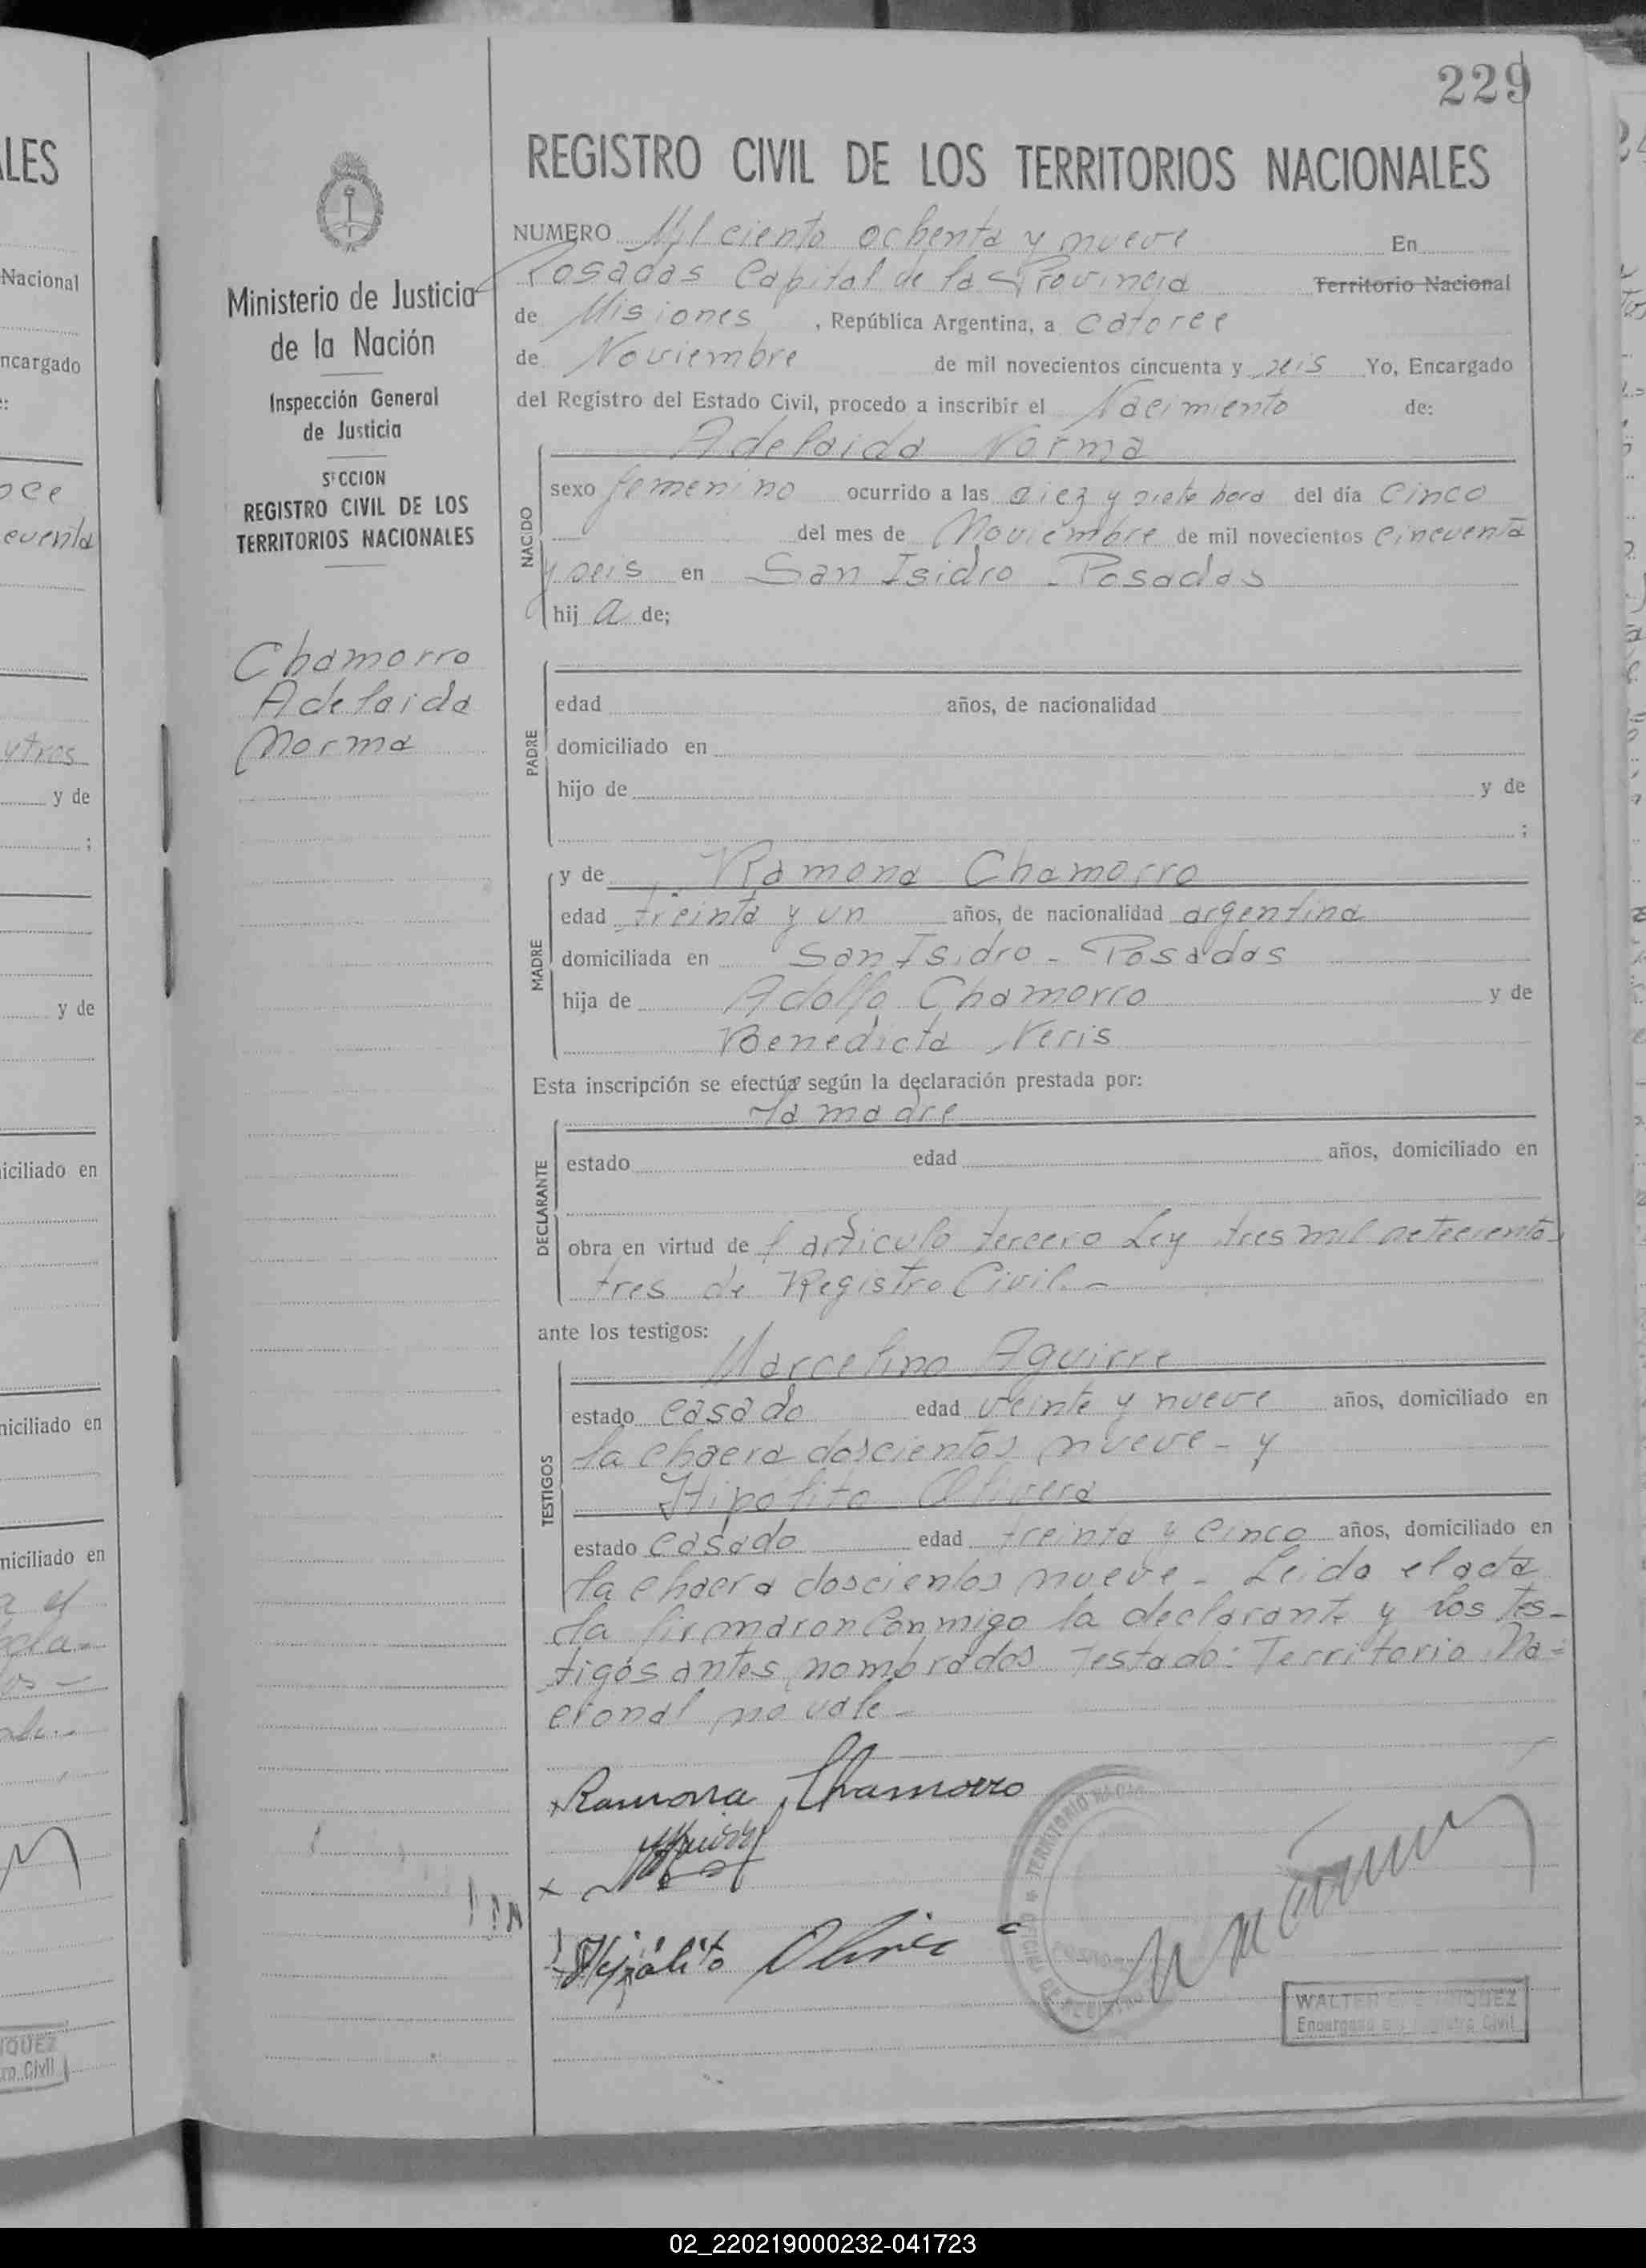 229
REGISTRO CIVIL DE LOS TERRITORIOS NACIONALES
NUMERO Mil ciento ochenta y nueve En
Posadas Capital de la Provincia Territorio Nacional
de Misiones, República Argentina, a catorce
de Noviembre de mil novecientos cincuenta y seis Yo, Encargado
del Registro del Estado Civil, procedo a inscribir el Nacimiento de:
Adelaida Norma
NACIDO
sexo femenino ocurrido a las diez y siete hora del día cinco
del mes de Noviembre de mil novecientos cincuenta
y seis en San Isidro - Posadas
hij a de;
PADRE
edad años, de nacionalidad
domiciliado en
hijo de y de
;
y de Ramona Chamorro
MADRE
edad treinta y un años, de nacionalidad argentina
domiciliada en San Isidro - Posadas
hija de Adolfo Chamorro y de
Benedicta Neris
Esta inscripción se efectúa según la declaración prestada por:
la madre
DECLARANTE
estado edad años, domiciliado en
obra en virtud de l articulo tercero Ley tres mil setecientos
tres de Registro Civil.-
ante los testigos:
Marcelino Aguirre
TESTIGOS
estado casado edad veinte y nueve años, domiciliado en
la chacra doscientos nueve - y
Hipólito Olivera
estado casado edad treinta y cinco años, domiciliado en
la chacra doscientos nueve - Leida el acta
la firmaron conmigo la declarante y los tes-
tigos antes nombrados Testado: Territorio Na=
cional no vale -
Ramona Chamorro
Hipólito
WALTER
Encargado Registro Civil
Ministerio de Justicia
de la Nación
Inspección General
de Justicia
SECCION
REGISTRO CIVIL DE LOS
TERRITORIOS NACIONALES
Chamorro
Adelaida
Norma
LES
Nacional
ncargado
y de
;
y de
iciliado en
niciliado en
niciliado en
02_220219000232-041723